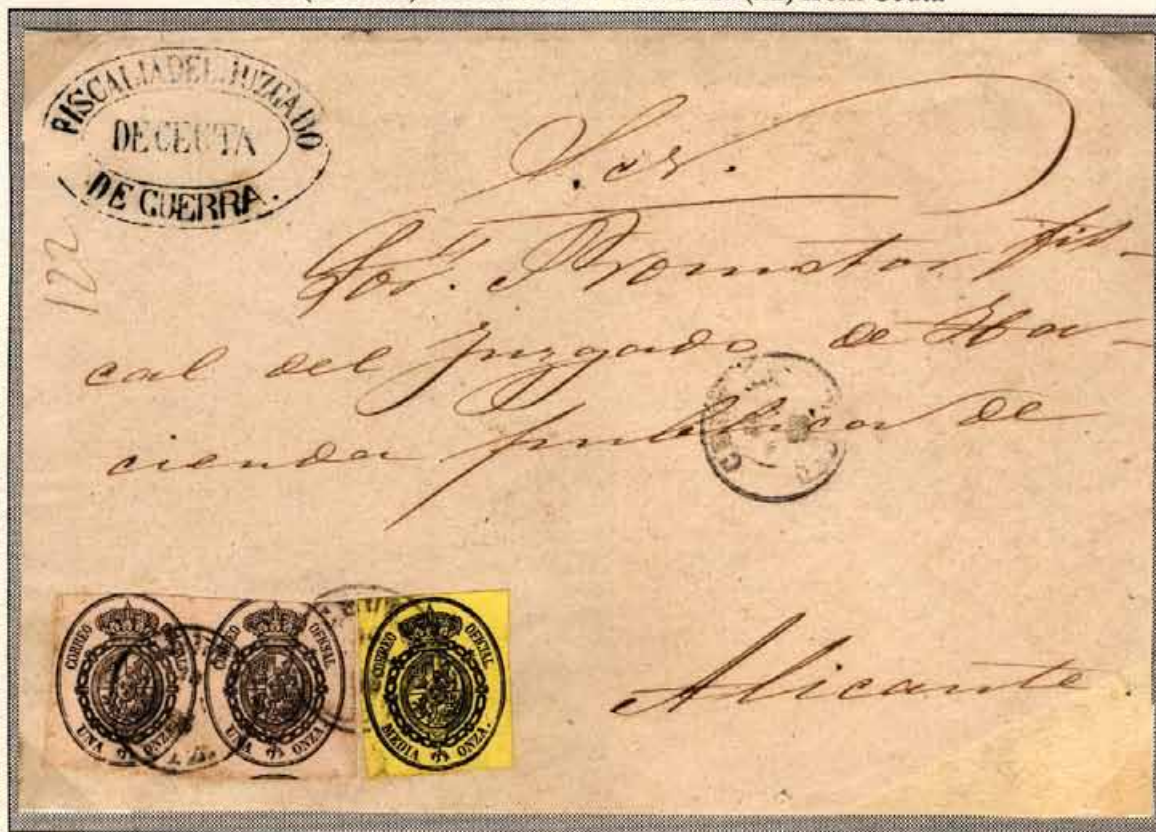 FISCALIA DEL JUZGADO
DE CEUTA
DE GUERRA.
122
S. N.
Sor. Promotor fis-
cal del Juzgado de Ha-
cienda publica de
Alicante.
CORREO OFICIAL
UNA ONZA.
CORREO OFICIAL
UNA ONZA.
CORREO OFICIAL
MEDIA ONZA.